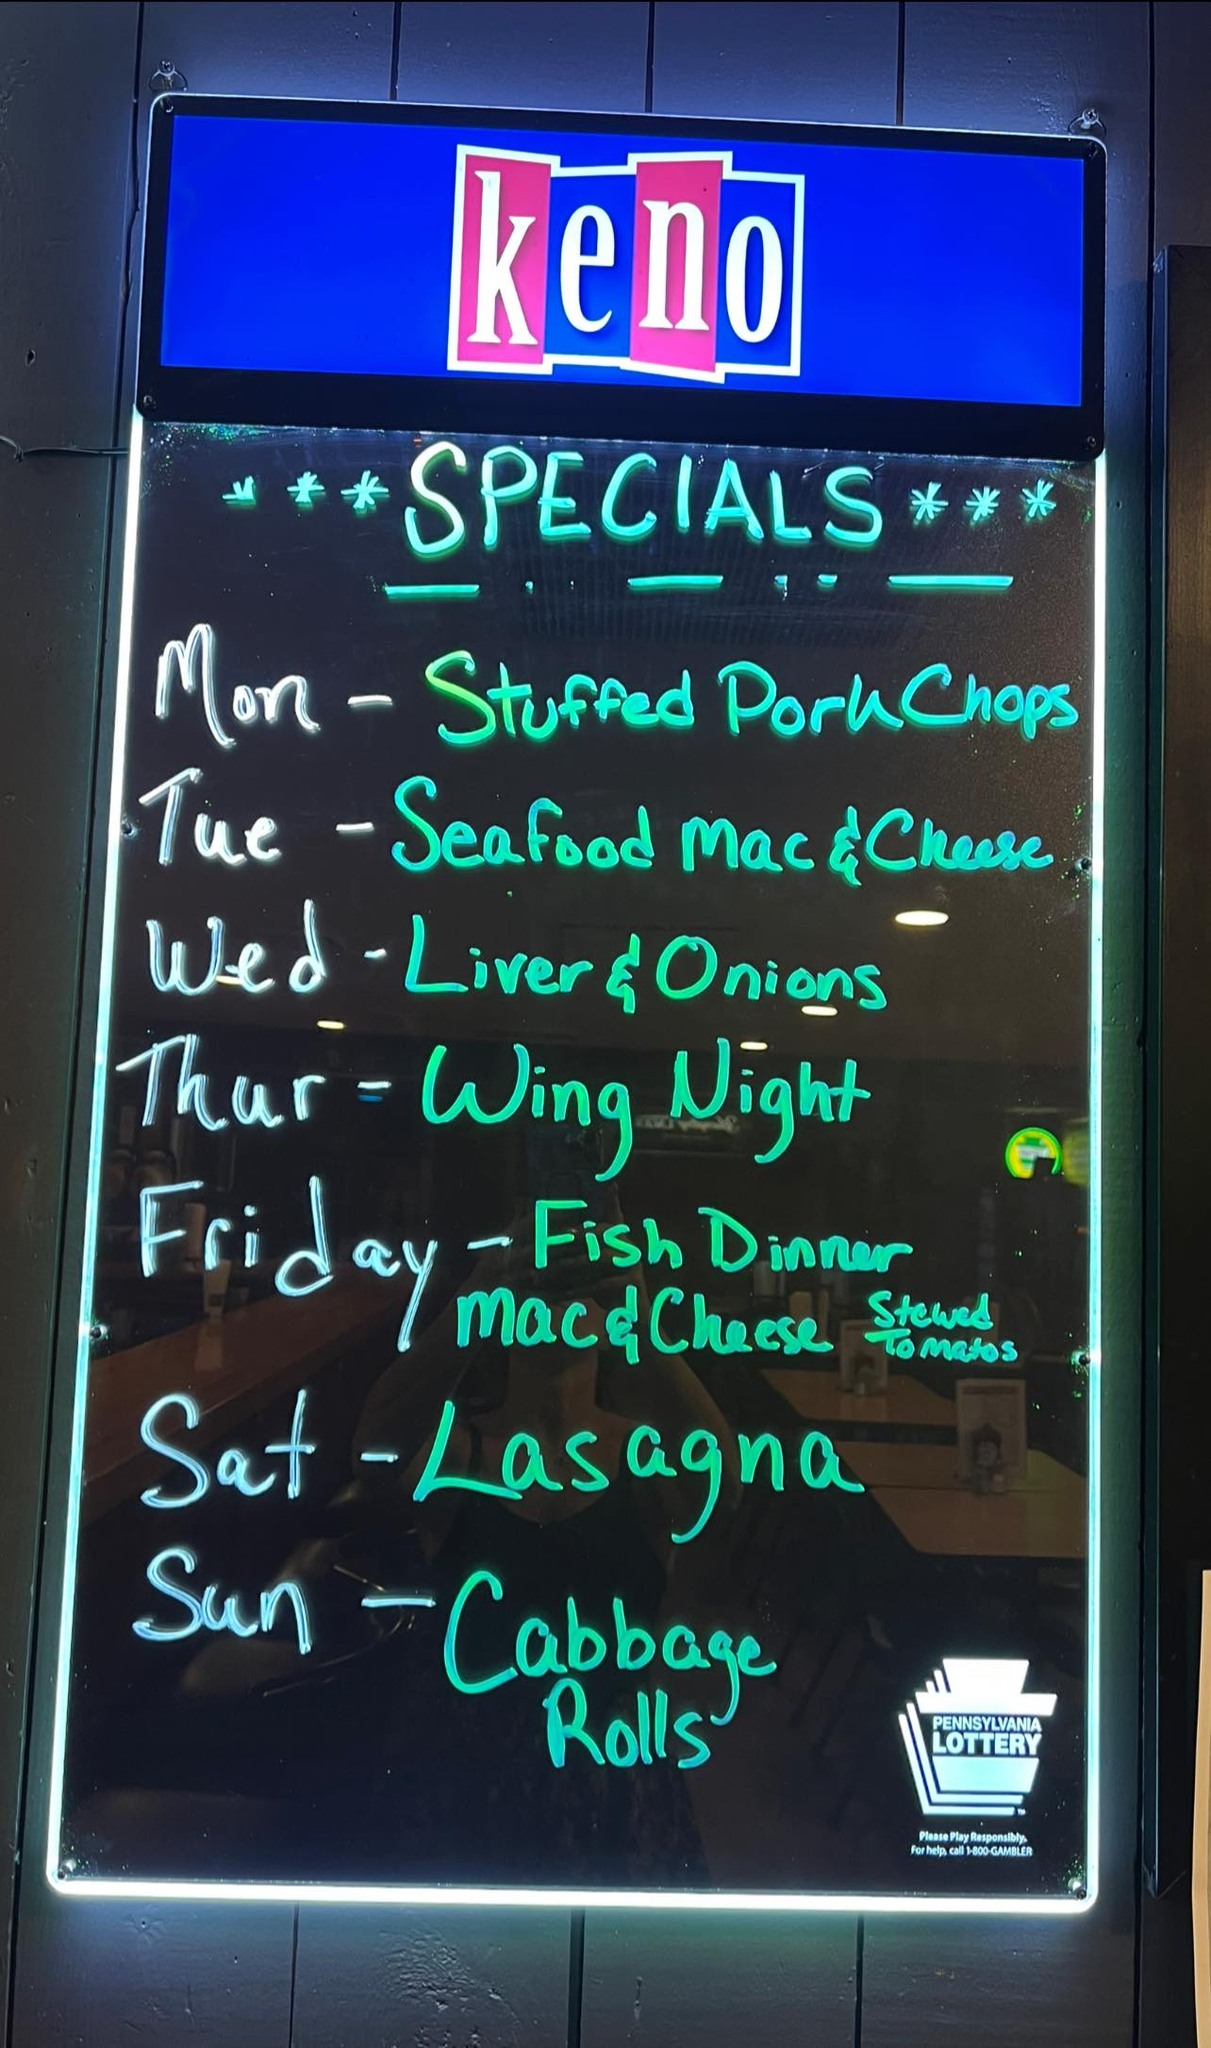 keno
***SPECIALS***
Mon - Stuffed Pork Chops
Tue - Seafood Mac & Cheese
Wed - Liver & Onions
Thur - Wing Night
Friday - Fish Dinner
Mac & Cheese Stewed
Tomatos
Sat - Lasagna
Sun - Cabbage
Rolls
PENNSYLVANIA
LOTTERY
Please Play Responsibly.
For help, call 1-800-GAMBLER